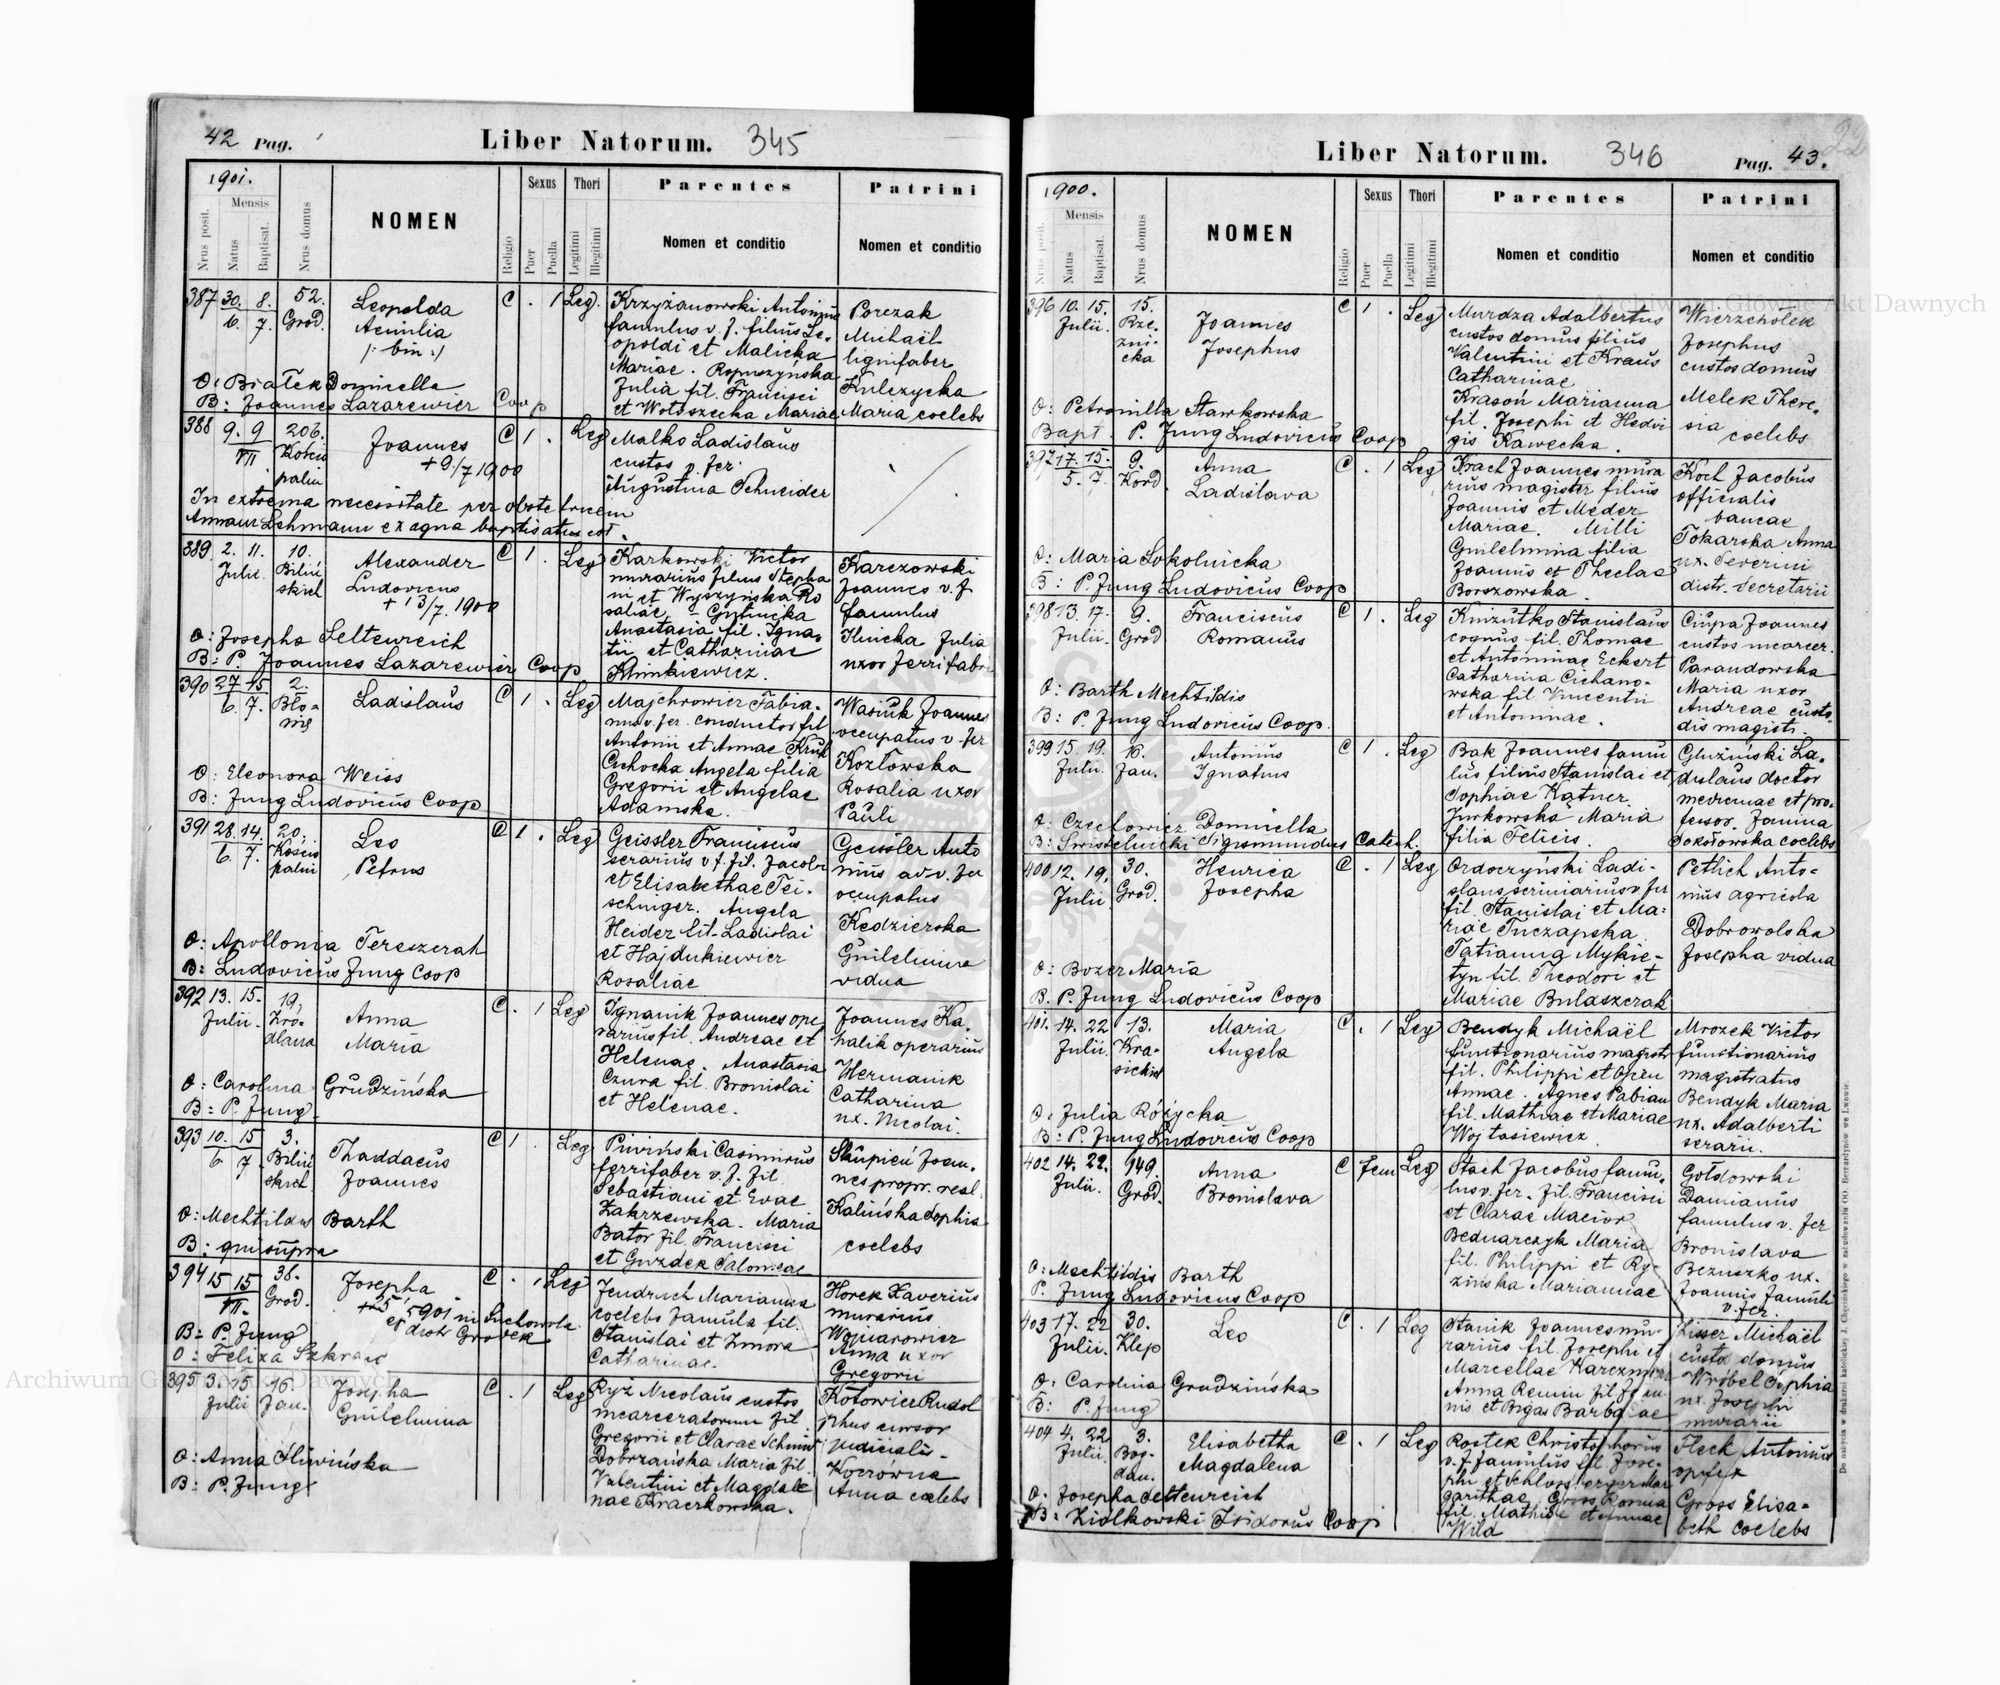 42 Pag.
Liber Natorum. 345
1901.
Mensis
Nrus posit.
Natus
Baptisat.
Nrus domus
NOMEN
Religio
Sexus
Puer
Puella
Thori
Legitimi
Illegitimi
Parentes
Nomen et conditio
Patrini
Nomen et conditio
387 30. 8. 52. Leopolda C . 1 Leg. Krzyżanowski Antonius Porczak
6. 7. Grod. Aemilia famulus v. f. filius Le- Michaël
/: bin :/ opoldi et Malicka lignifaber
Mariae. Ropuszyńska
O: Białek Domicella Julia fil. Francisci Kulczycka
B: Joannes Lazarewicz Coop et Wołoszecka Mariae Maria coelebs
388 9. 9 206. Joannes C 1 . Leg Malko Ladislaus
VII Kościu +9/7 1900 custos v. fer.
palni Augustina Schneider
In extrema necessitate per obstetricem
Annam Lehmann ex aqua baptisatus est.
389 2. 11. 10. Alexander C 1. Leg Karkowski Victor Karczowski
Julii. Biliń Ludovicus murarius filius Stepha Joannes v. f
skich + 13/7. 1900 ni et Wyszyńska Ro famulus
saliae
O: Josepha Seltenreich Anastasia fil. Igna- Ilnicka Julia
B: P. Joannes Lazarewicz Coop tii et Catharinae uxor ferrifabri
Klimkiewicz.
390 27 15 2. Ladislaus C 1 . Leg Majchrowicz Fabia- Wasiuk Joannes
6. 7. Bło- nus v. fer. conductor fil occupatus v. fer
nie Antonii et Annae Kruk
Cichocka Angela filia Kozłowska
O: Eleonora Weiss Gregorii et Angelae Rosalia uxor
B: Jung Ludovicus Coop Adamska. Pauli
391 28. 14. 20. Leo C 1 . Leg Geissler Franciscus Geissler Anto
6. 7. Kościu Petrus serarius v. f. fil. Jacobi nius ad v. fer
palni et Elisabethae Tei- occupatus
schinger. Angela
Heider fil. Ladislai Kędzierska
O: Apollonia Tereszczak et Hajdukiewicz Guilelmina
B: Ludovicus Jung Coop Rosaliae vidua
392 13. 15. 19. Anna C . 1 Leg Ignanik Joannes ope Joannes Ka-
Julii. Źró- Maria rarius fil. Andreae et halik operarius
dlana Helenae. Anastasia Hermanik
O: Carolina Grudzińska Czura fil. Bronislai Catharina
B: P. Jung et Helenae. ux. Nicolai.
393 10. 15 3. Thaddaeus C 1 . Leg Piwiński Casimirus Skupień Joan-
6 7 Biliń Joannes ferrifaber v. f. fil. nes propr. real.
skich Sebastiani et Evae
O: Mechtildis Barth Zakrzewska. Maria Kalińska Sophia
B: qui supra Bator fil. Francisci coelebs
et Guzdek Salomeae
394 15 15 38. Josepha C . 1 Leg Jendruch Marianna Horek Xaverius
VII. Grod. +25 5 901 in Suchowola coelebs famula fil. murarius
B: P. Jung distr Grodek Stanislai et Zmora Wojnarowicz
O: Felixa Catharinae. Anna uxor
Gregorii
395 3. 15 16. Josepha C . 1 Leg Ryż Nicolaus custos Kotowicz Rudol
Julii Jan. Guilelmina incarceratorum fil phus cursor
Gregorii et Clarae Schmid judicialis
O: Anna Śliwińska Dobrzańska Maria fil.
B: P. Jung Valentini et Magdale Anna coelebs
nae Kraczkowska.
Liber Natorum. 346
Pag. 43.
22
1900.
Mensis
Nrus posit.
Natus
Baptisat.
Nrus domus
NOMEN
Religio
Sexus
Puer
Puella
Thori
Legitimi
Illegitimi
Parentes
Nomen et conditio
Patrini
Nomen et conditio
396 10. 15. 15. Joannes C 1 . Leg Murdza Adalbertus Wierzchołek
Julii. Rze- Josephus custos domus filius Josephus
zni- Valentini et Kraus custos domus
cka Catharinae
O: Petronilla Stawkowska Krasoń Marianna Melek There-
Bapt. P. Jung Ludovicus Coop fil. Josephi et Hedvi sia coelebs
gis Kawecka.
397 17. 15. 9. Anna C . 1 Leg Krach Joannes mura Koch Jacobus
5. 7. Kord. Ladislava rius magister filius officialis
Joannis et Meder bancae
Mariae. Milli
O: Maria Sokolnicka Guilelmina filia Tokarska Anna
B: P. Jung Ludovicus Coop Joannis et Theclae ux. Severini
Borszowska. distr. Secretarii
398 13. 17. 9. Franciscus C 1 . Leg Kniżutko Stanislaus Ciupa Joannes
Julii. Grod Romanus coquus fil. Thomae custos incarcer.
et Antoninae Eckert Parandowska
O: Barth Mechtildis Catharina Cichano- Maria uxor
B: P. Jung Ludovicus Coop. wska fil Vincentii Andreae custo
et Antoninae. dis magistr.
399 15. 19. 16. Antonius C 1 . Leg Bak Joannes famu Gluziński La-
Julii. Jan. Ignatius lus filius Stanislai et dislaus doctor
Sophiae Katner. medicinae et pro-
O: Czechowicz Domicella Jurkowska Maria fessor. Janina
B: Swistelnicki Sigismundus Catech. filia Felicis. Sokołowska coelebs
400 12. 19. 30. Henrica C . 1 Leg Ordoczyński Ladi- Petlich Anto-
Julii Grod. Josepha slaus scriniarius v fer nius agricola
fil. Stanislai et Ma-
riae Tuczapska Dobrowolska
O: Bozer Maria Tatianna Mykie- Josepha vidua
B. P. Jung Ludovicus Coop tyn fil. Theodori et
Mariae Bulaszczak
401. 14. 22 13. Maria C . 1 Leg Bendyk Michaël Mrozek Victor
Julii. Kra- Angela functionarius magistr functionarius
sickich fil. Philippi et magistratus
Annae. Agnes Pabian Bendyk Maria
O: Julia Różycka fil. Mathiae et Mariae ux. Adalberti
B: P. Jung Ludovicus Coop Wojtasiewicz. serarii.
402 14. 22. 949. Anna C fem Leg Stach Jacobus famu- Gołdowski
Julii. Grod. Bronislava lus v. fer. fil. Francisci Damianus
et Clarae Macior famulus v. fer
Bednarczyk Maria Bronislava
O: Mechtildis Barth fil. Philippi et Ry- Bezuszko ux.
P. Jung Ludovicus Coop zińska Mariannae Joannis famuli
v. fer.
403 17. 22 30. Leo C . 1 Leg Stanik Joannes mu- Lisser Michaël
Julii. Klep rarius fil. Josephi et custos domus
Marcellae Wróbel Sophia
O: Carolina Grudzińska Anna fil Joan- ux. Josephi
B: P. Jung nis et Barbarae murarii
404 4. 22 3. Elisabetha C . 1 Leg Rostek Christophorus Fleck Antonius
Julii Bog- Magdalena v. f. famulus fil. Jose- opifex
dan. phi et Schlossberger Mar
O: Josepha Seltenreich garithae Gross Elisa-
B: Ziółkowski Isidorus Coop fil. Mathiae et Annae beth coelebs
Wild
Do nabycia w drukarni katolickiej J. Chęcińskiego w zabudowaniu OO. Bernardynów we Lwowie.
Archiwum Główne Akt Dawnych
Archiwum Główne Akt Dawnych